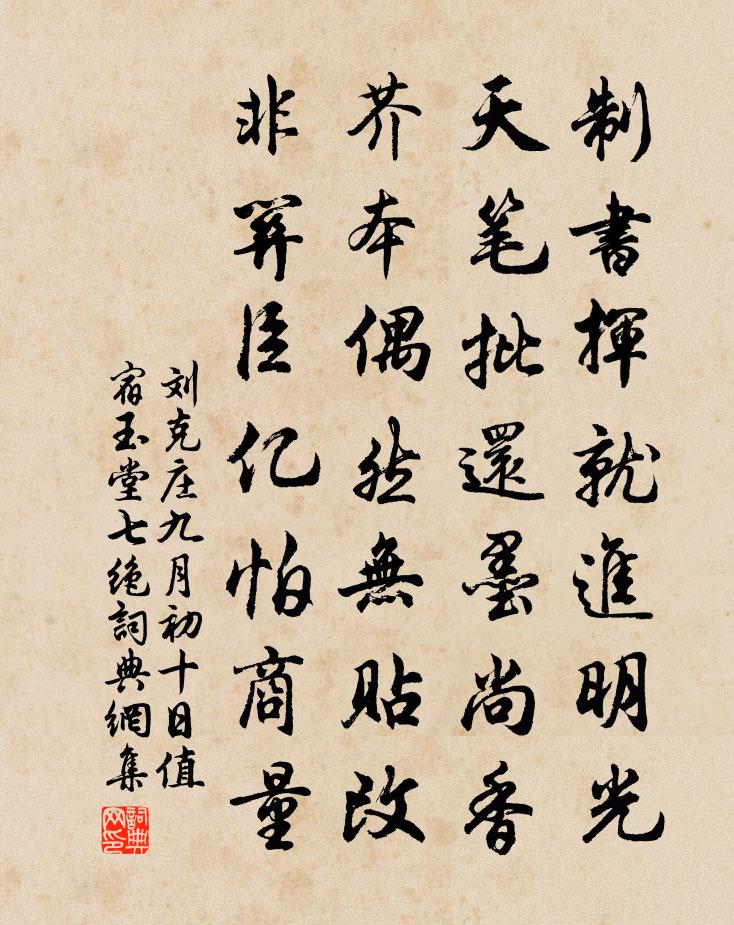 制書揮就進明光
天笔批還墨尚香
芥本偶然無貼改
非關臣亿怕商量
刘克庄九月初十日值
宿玉堂七绝詞典網集
詞典网印